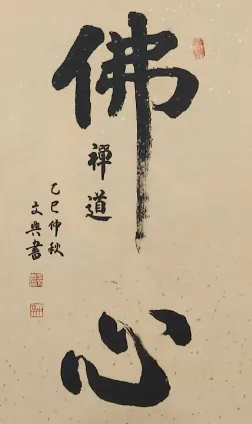 佛心
禪道
乙巳仲秋
文興書